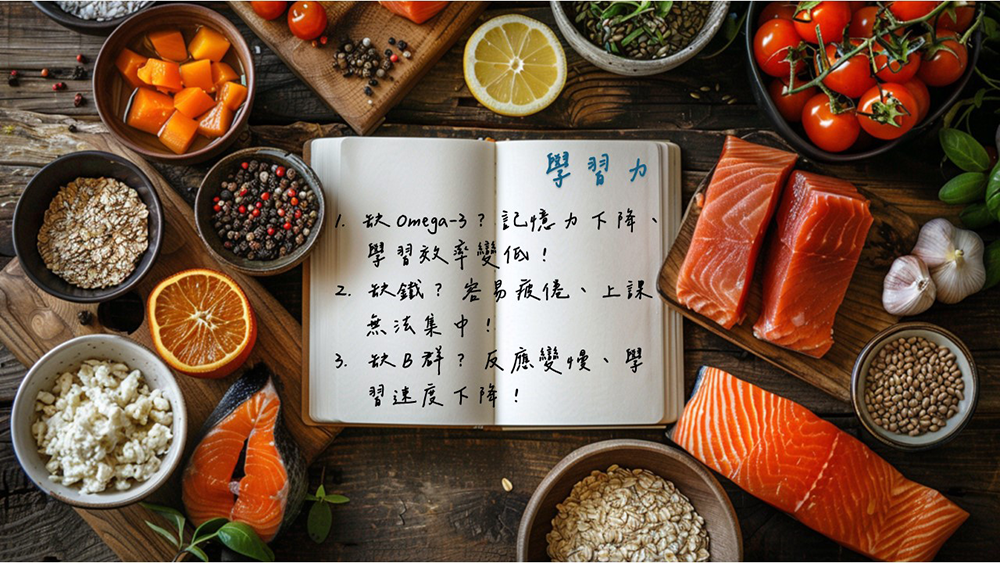 學習力
1. 缺Omega-3？記憶力下降、
學習效率變低！
2. 缺鐵？容易疲倦、上課
無法集中！
3. 缺B群？反應變慢、學
習速度下降！